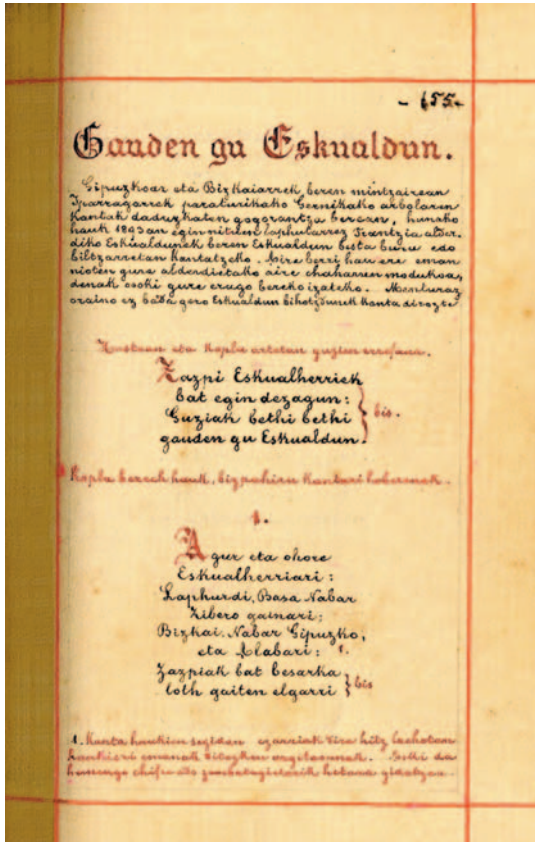 - 155 -
Gauden gu Eskualdun.
Gipuzkoar eta Bizkaiarrek beren mintzairean
Iparragarrek paraturikako Gernikako arbolaren
kantak daduzkaten gogorantza berean, hunako
hauk 1893an egin nituen laphutarrez Frantzia alder-
diko Eskualdunek beren Eskualdun besta buru edo
biltzarretan kantatzeko. Aire berri hau ere eman
nioten gure alderdietako aire chaharren modukoa,
denak osoki gure erugo bereko izateko. Menturaz
oraino ez bada gero Eskualdun bihotzdunek kanta dirozte
Hastean eta kopla artetan guzien errefaua.
Zazpi Eskualherriek
bat egin dezagun:
Guziak bethi bethi } bis.
gauden gu Eskualdun.
Kopla berech hauk, bizpahiru kantari hoberenek.
1.
Agur eta ohore
Eskualherriari:
Laphurdi, Basa Nabar
Zibero gainari;
Bizkai, Nabar Gipuzko,
eta Alabari: 1.
Zazpiak bat besarka
loth gaiten elgarri } bis
1. Kanta haukien segidan ezarriak dire hitz
emanak